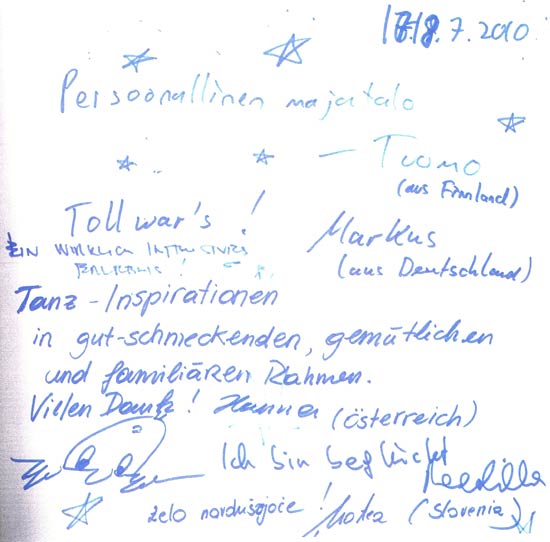 7.2010
Persoonallinen majatalo
— Tuomo
(aus Finnland)
Toll war's !
Markus
(aus Deutschland)
EIN WIRKLICH INTENSIVES
Tanz-Inspirationen
in gut-schmeckenden, gemütlichen
und familiären Rahmen.
Vielen Dank! Hanna (Österreich)
Ich bin beglückt
zelo navdušujoče ! (Slovenia)